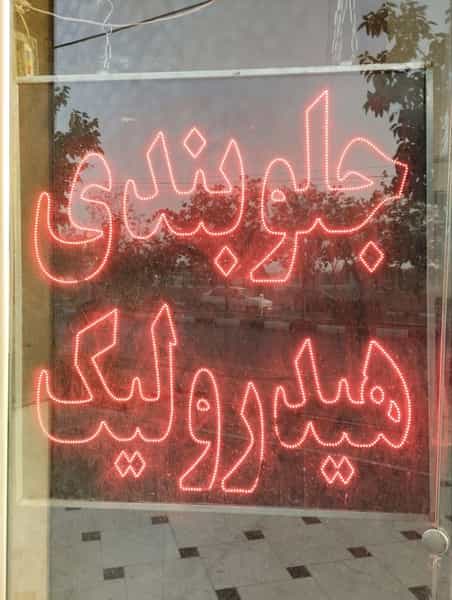 جلوبندی
هیدرولیک